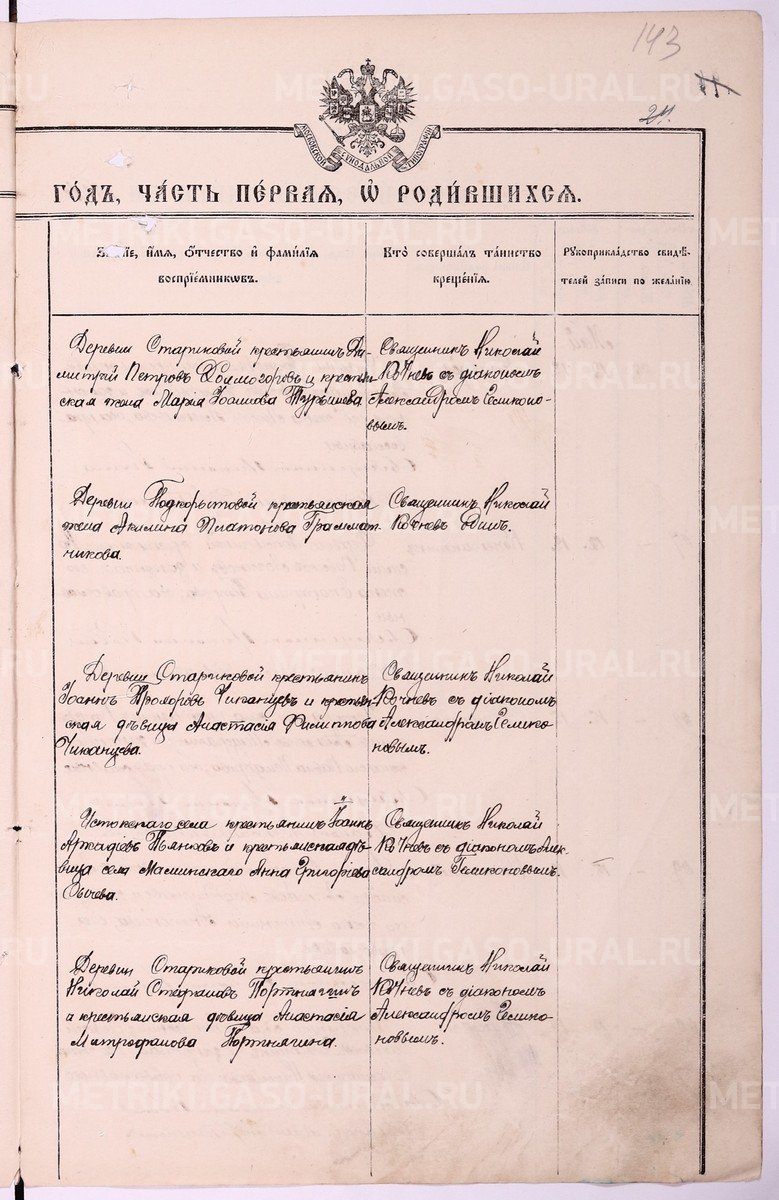 143
24.
МОСКОВСКОЙ СѴНОДАЛЬНОЙ ТИПОГРАФІИ
ГО́ДЪ, ЧА́СТЬ ПЕ́РВАЯ, Ѽ РОДИ́ВШИХСЯ.
И́МЯ, Ѻ҆́ТЧЕСТВО И҆ ФАМИ́ЛІЯ
ВОСПРІЕ́МНИКѠВЪ.
КТО̀ СОВЕРША́ЛЪ ТА́ИНСТВО
КРЕЩЕ́НІЯ.
РУКОПРИКЛА́ДСТВО СВИДѢ́-
ТЕЛЕЙ ЗА́ПИСИ ПО ЖЕЛА́НІЮ.
Деревни Стариковой крестьянинъ Ди-
митрій Петровъ Колмогоровъ и крестьян-
ская жена Марія Іоаннова Турышева.
Священникъ Николай
Кочневъ съ діакономъ
Александромъ Геликоно-
вымъ.
Деревни Подкорытовой крестьянская
жена Акилина Платонова Граммат-
никова.
Священникъ Николай
Кочневъ одинъ.
Деревни Стариковой крестьянинъ
Іоаннъ Прохоровъ Чиканцевъ и крестьян-
ская дѣвица Анастасія Филиппова
Чиканцева.
Священникъ Николай
Кочневъ съ діакономъ
Александромъ Гелико-
новымъ.
Истокскаго села крестьянинъ Іоаннъ
Аркадіевъ Пьянковъ и крестьянская дѣ-
вица села Маминскаго Анна Григоріева
Сычева.
Священникъ Николай
Кочневъ съ діакономъ Алек-
сандромъ Геликоновымъ.
Деревни Стариковой крестьянинъ
Николай Стефановъ Портнягинъ
и крестьянская дѣвица Анастасія
Митрофанова Портнягина.
Священникъ Николай
Кочневъ съ діакономъ
Александромъ Гелико-
новымъ.
METRIKI.GASO-URAL.RU